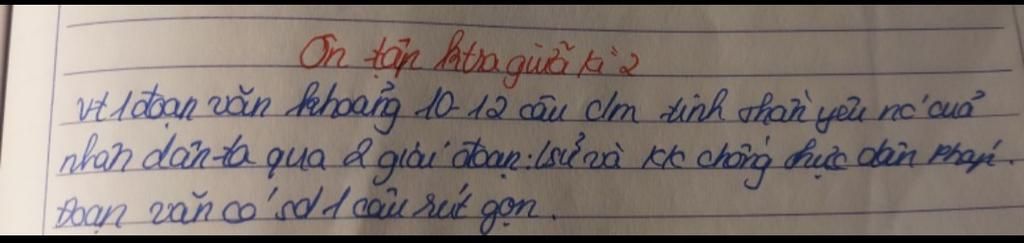 Ôn tập ktra giữa kì 2
vt 1 đoạn văn khoảng 10-12 câu c/m tinh thần yêu nc' của
nhân dân ta qua 2 giai đoạn: lsử và kk chống thực dân Pháp.
Đoạn văn có sd 1 câu rút gọn.